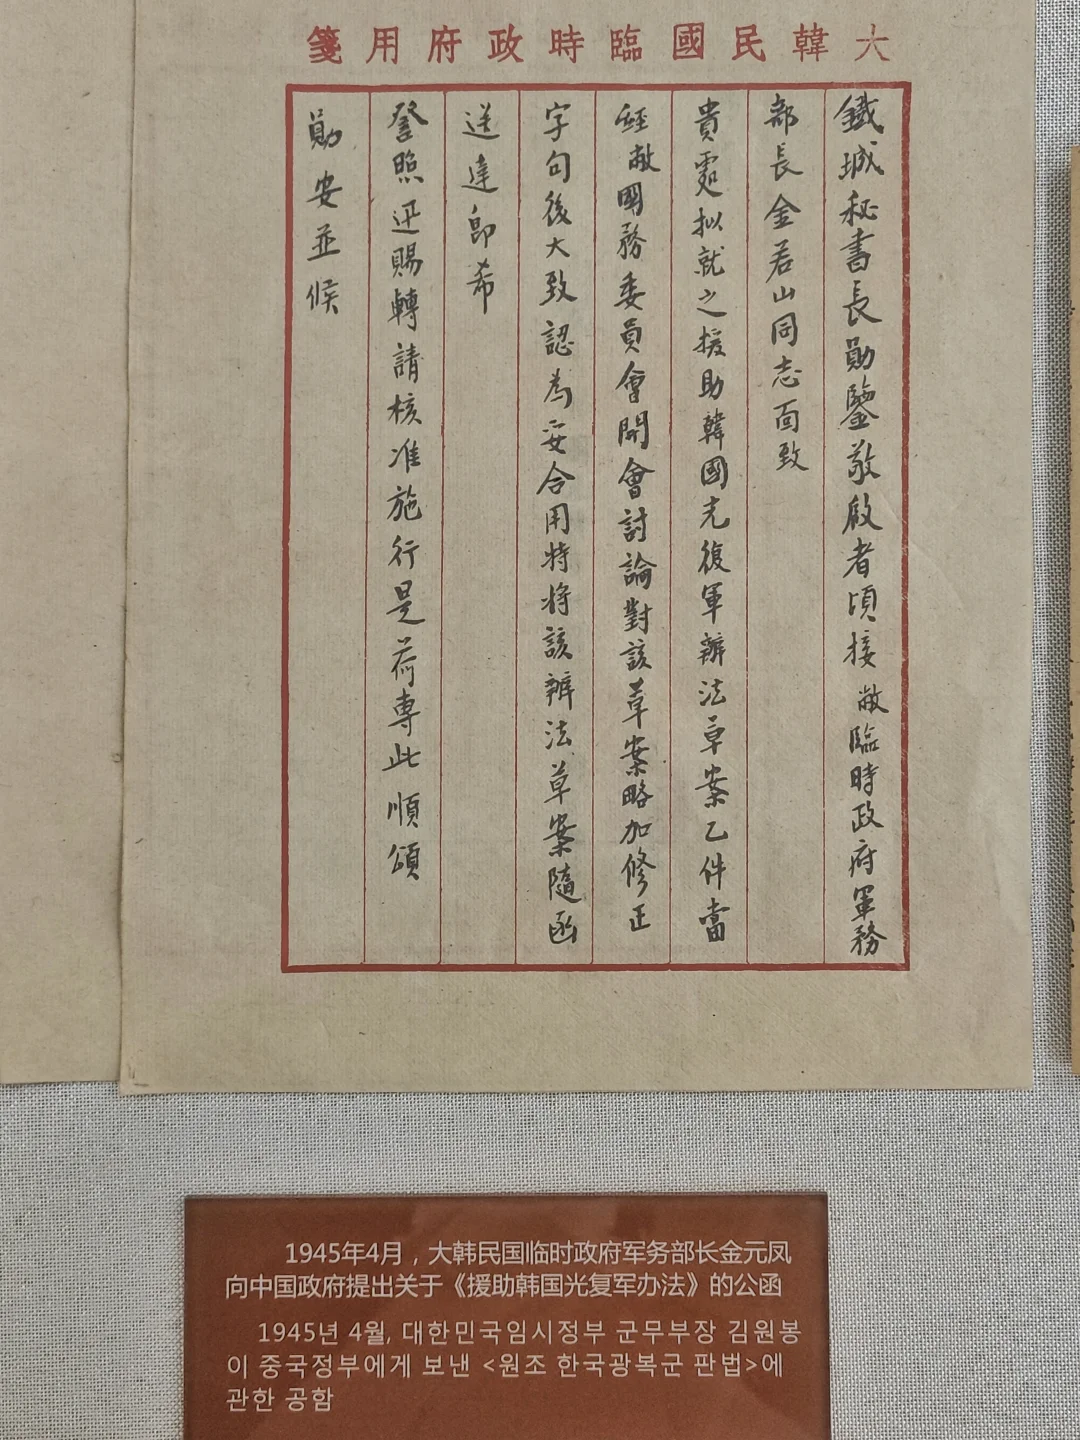 大韓民國臨時政府用箋
鐵城秘書長勛鑒敬啟者頃接敝臨時政府軍務
部長金若山同志面致
貴處拟就之援助韓國光復軍辦法草案乙件當
經敝國務委員會開會討論對該草案略加修正
字句後大致認為妥合用特将該辦法草案隨函
送達即希
詧照迅賜轉請核准施行是荷專此順頌
勛安並候
1945年4月，大韩民国临时政府军务部长金元凤
向中国政府提出关于《援助韩国光复军办法》的公函
1945년 4월, 대한민국임시정부 군무부장 김원봉
이 중국정부에게 보낸 <원조 한국광복군 판법>에
관한 공함